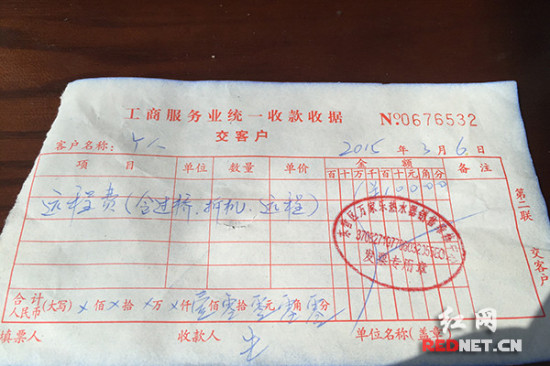 工商服务业统一收款收据 №0676532
交客户
客户名称: 个人 2015年3月6日
项目 单位 数量 单价 金额 备注
百十万千百十元角分
¥10000
远程费(含过桥.拆机.远程)
发票专用章
合计人民币(大写) ×佰×拾×万×仟壹佰零拾零元零角零分
填票人 收款人 单位名称(盖章)
第二联 交客户
红网
REDNET.CN